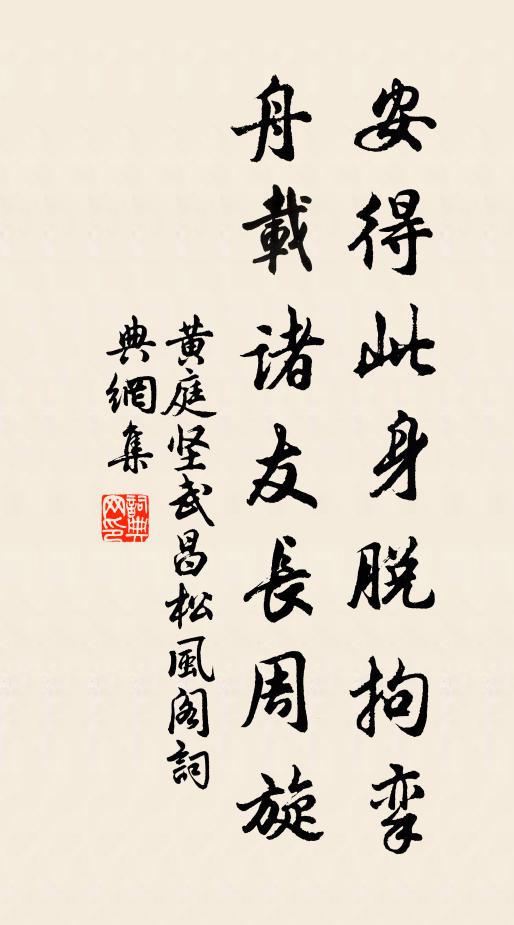 安得此身脱拘挛
舟載诸友長周旋
黄庭坚武昌松風阁詞
典網集
詞典网印